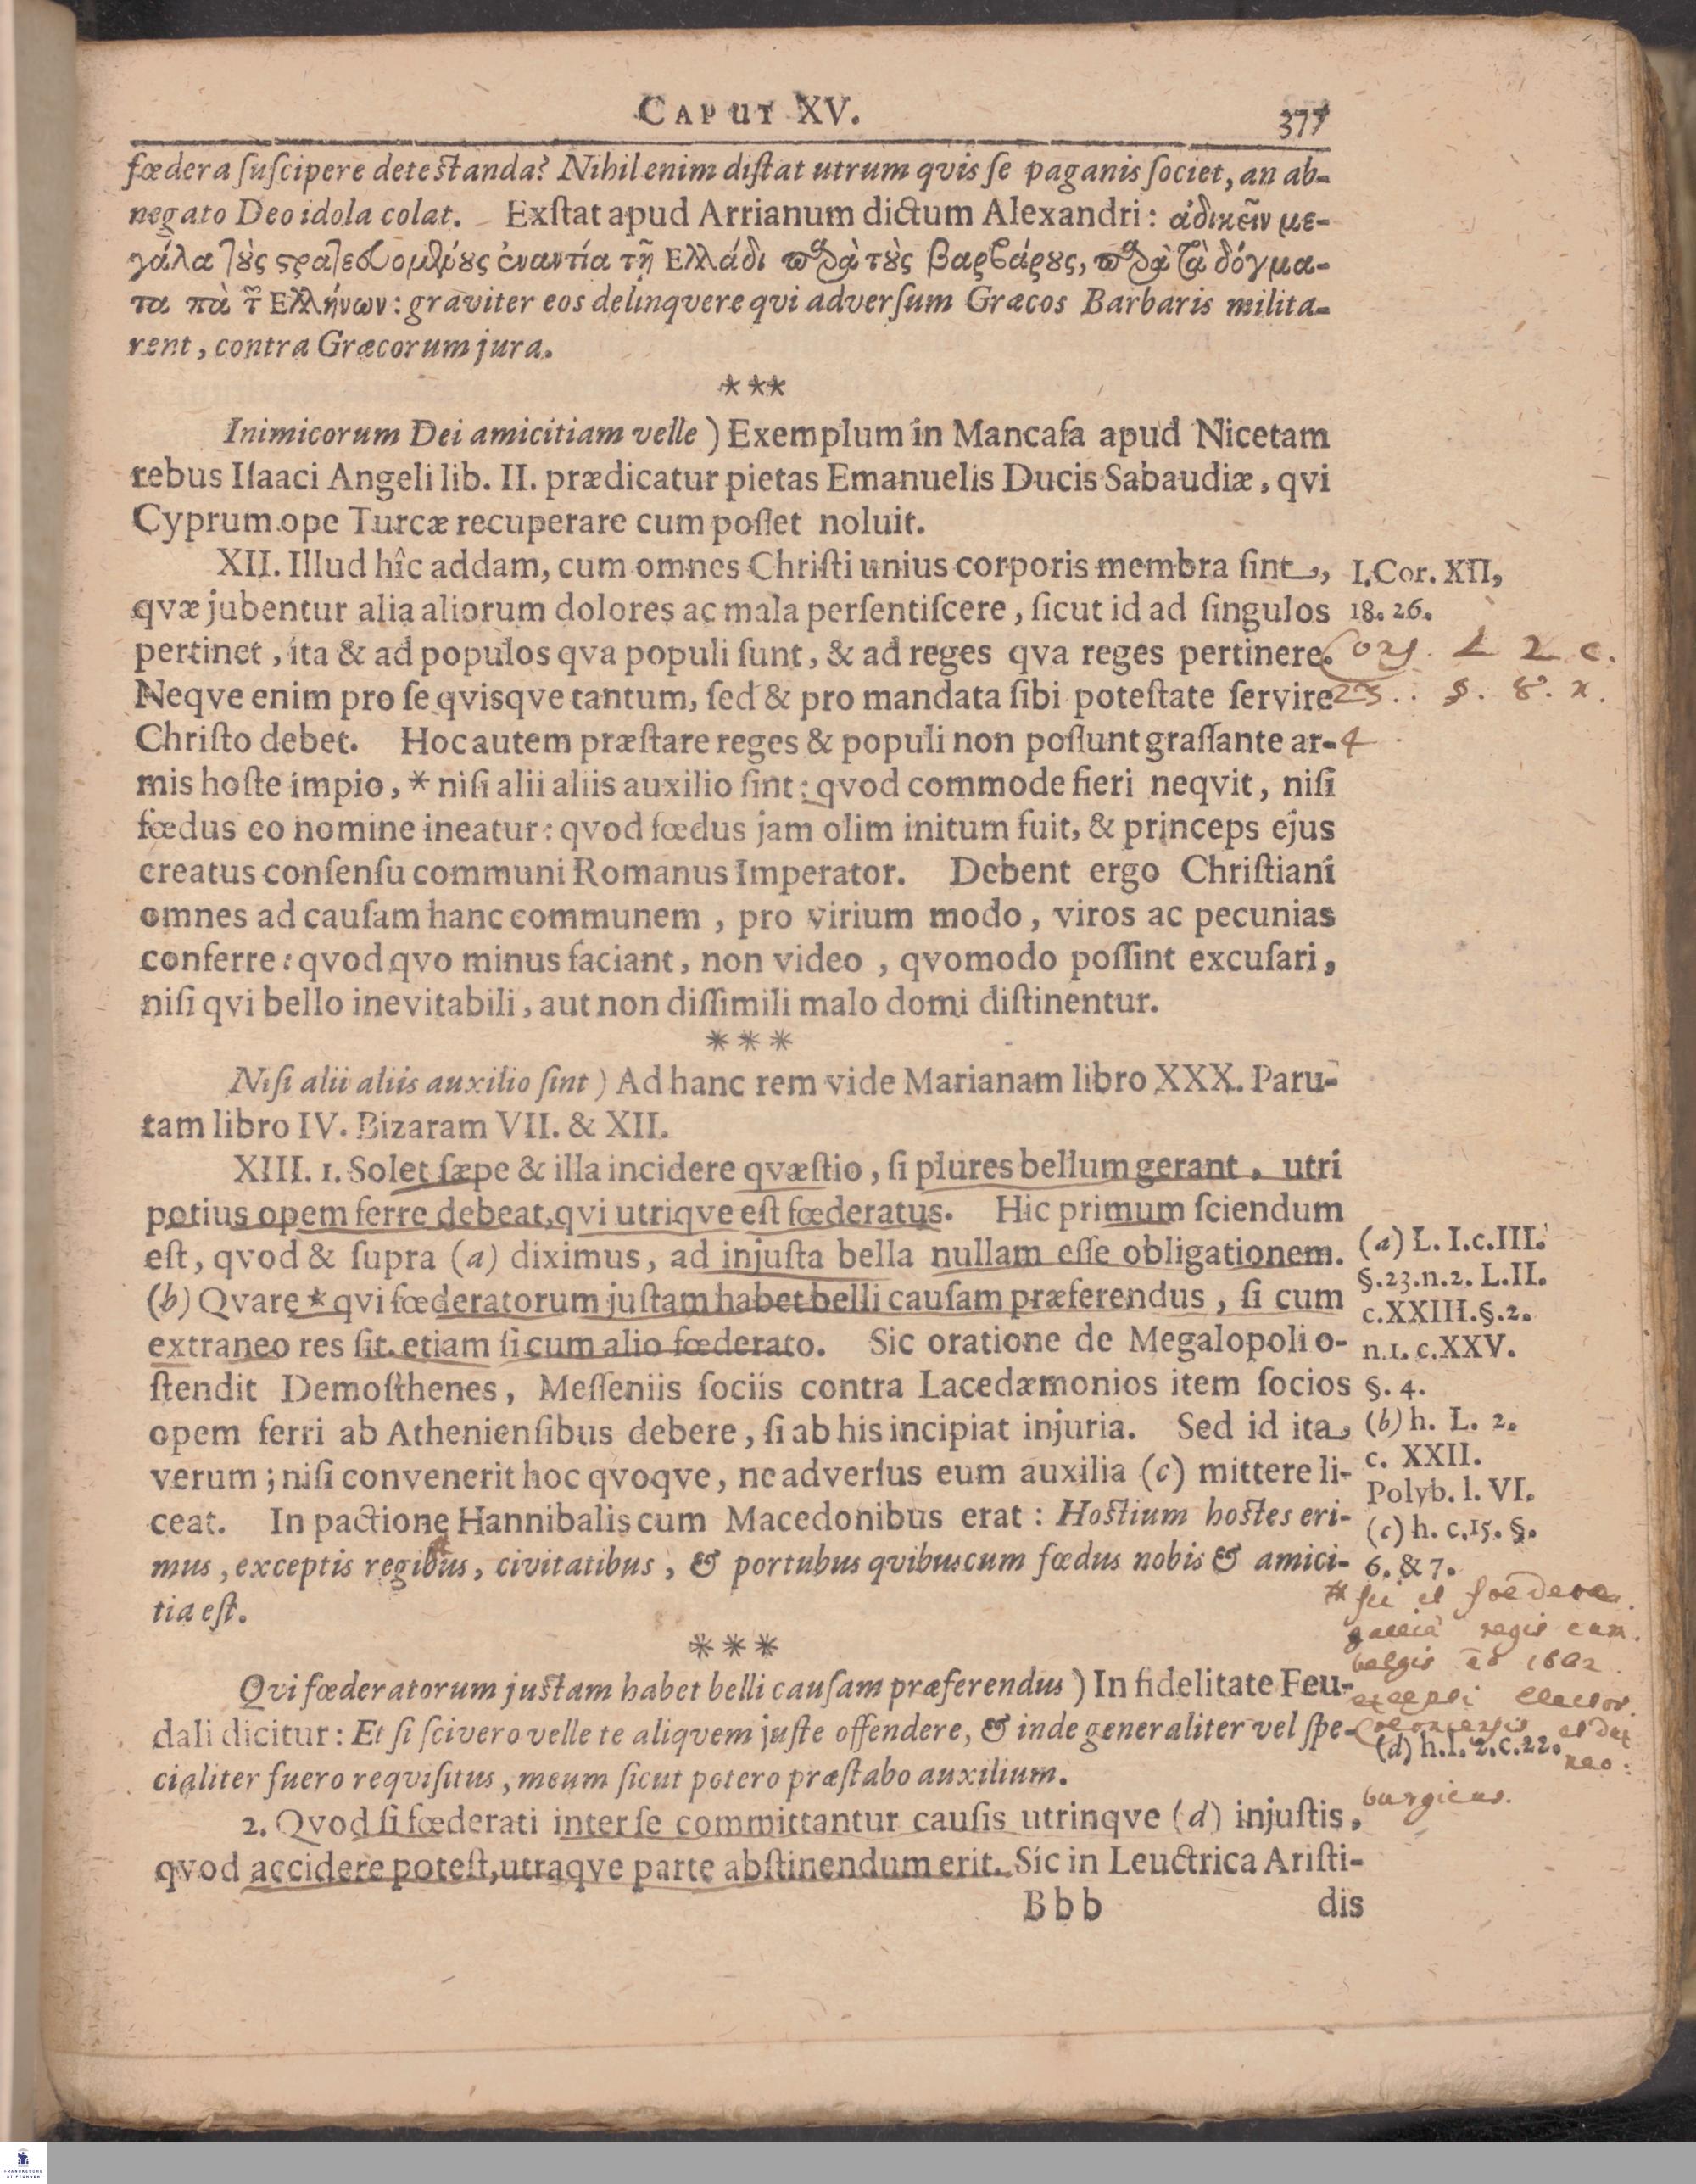 CAPUT XV. 377
fœdera ſuſcipere deteſtanda? Nihil enim diſtat utrum qvis ſe paganis ſociet, an ab-
negato Deo idola colat. Exſtat apud Arrianum dictum Alexandri: ἀδικεῖν με-
γάλα τοὺς στρατευομένους ἐναντία τῇ Ελλάδι παρὰ τοὺς βαρβάρους, παρὰ τὰ δόγμα-
τα πὰ τ̃ Ελλήνων: graviter eos delinqvere qvi adverſum Græcos Barbaris milita-
rent, contra Græcorum jura.
***
Inimicorum Dei amicitiam velle) Exemplum in Mancafa apud Nicetam
rebus Iſaaci Angeli lib. II. prædicatur pietas Emanuelis Ducis Sabaudiæ, qvi
Cyprum ope Turcæ recuperare cum poſſet noluit.
XII. Illud hîc addam, cum omnes Chriſti unius corporis membra ſint,
qvæ jubentur alia aliorum dolores ac mala perſentiſcere, ſicut id ad ſingulos
pertinet, ita & ad populos qva populi ſunt, & ad reges qva reges pertinere.
Neqve enim pro ſe qvisqve tantum, ſed & pro mandata ſibi poteſtate ſervire
Chriſto debet. Hoc autem præſtare reges & populi non poſſunt graſſante ar-
mis hoſte impio, * niſi alii aliis auxilio ſint: qvod commode fieri neqvit, niſi
fœdus eo nomine ineatur: qvod fœdus jam olim initum fuit, & princeps ejus
creatus conſenſu communi Romanus Imperator. Debent ergo Chriſtiani
omnes ad cauſam hanc communem, pro virium modo, viros ac pecunias
conferre: qvod qvo minus faciant, non video, qvomodo poſſint excuſari,
niſi qvi bello inevitabili, aut non diſſimili malo domi diſtinentur.
I. Cor. XII,
18. 26.
***
Niſi alii aliis auxilio ſint) Ad hanc rem vide Marianam libro XXX. Paru-
tam libro IV. Bizaram VII. & XII.
XIII. 1. Solet ſæpe & illa incidere qvæſtio, ſi plures bellum gerant, utri
potius opem ferre debeat, qvi utriqve eſt fœderatus. Hic primum ſciendum
eſt, qvod & ſupra (a) diximus, ad injuſta bella nullam eſſe obligationem.
(b) Qvare * qvi fœderatorum juſtam habet belli cauſam præferendus, ſi cum
extraneo res ſit. etiam ſi cum alio fœderato. Sic oratione de Megalopoli o-
ſtendit Demoſthenes, Meſſeniis ſociis contra Lacedæmonios item ſocios
opem ferri ab Athenienſibus debere, ſi ab his incipiat injuria. Sed id ita
verum; niſi convenerit hoc qvoqve, ne adverſus eum auxilia (c) mittere li-
ceat. In pactione Hannibalis cum Macedonibus erat: Hoſtium hoſtes eri-
mus, exceptis regibus, civitatibus, & portubus qvibuscum fœdus nobis & amici-
tia eſt.
(a) L. I. c. III.
§. 23. n. 2. L. II.
c. XXIII. §. 2.
n. 1. c. XXV.
§. 4.
(b) h. L. 2.
c. XXII.
Polyb. l. VI.
(c) h. c. 15. §.
6. & 7.
***
Qvi fœderatorum juſtam habet belli cauſam præferendus) In fidelitate Feu-
dali dicitur: Et ſi ſcivero velle te aliqvem juſte offendere, & inde generaliter vel ſpe-
cialiter fuero reqviſitus, meum ſicut potero præſtabo auxilium.
2. Qvod ſi fœderati inter ſe committantur cauſis utrinqve (d) injuſtis,
qvod accidere poteſt, utraqve parte abſtinendum erit. Sic in Leuctrica Ariſti-
(d) h. l. 2. c. 22.
regis cum
belgis
Bbb dis